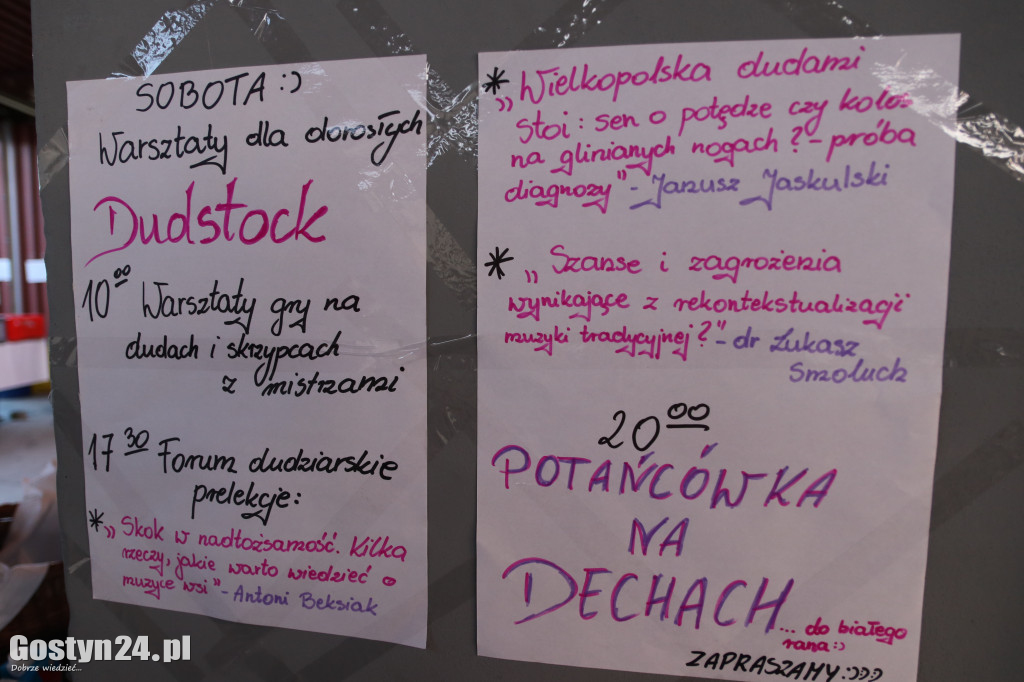 SOBOTA :)
Warsztaty dla dorosłych
Dudstock
10 00 Warsztaty gry na
dudach i skrzypcach
z mistrzami
17 30 Forum dudziarskie
prelekcje:
* „Skok w nadtożsamość. Kilka
rzeczy, jakie warto wiedzieć o
muzyce wsi" - Antoni Beksiak
* „Wielkopolska dudami
stoi: sen o potędze czy kolos
na glinianych nogach? - próba
diagnozy" - Janusz Jaskulski
* „Szanse i zagrożenia
wynikające z rekontekstualizacji
muzyki tradycyjnej?" - dr Łukasz
Smoluch
20 00
POTAŃCÓWKA
NA
DECHACH
... do białego
rana :)
ZAPRASZAMY :)))
Gostyn24.pl
Dobrze wiedzieć...